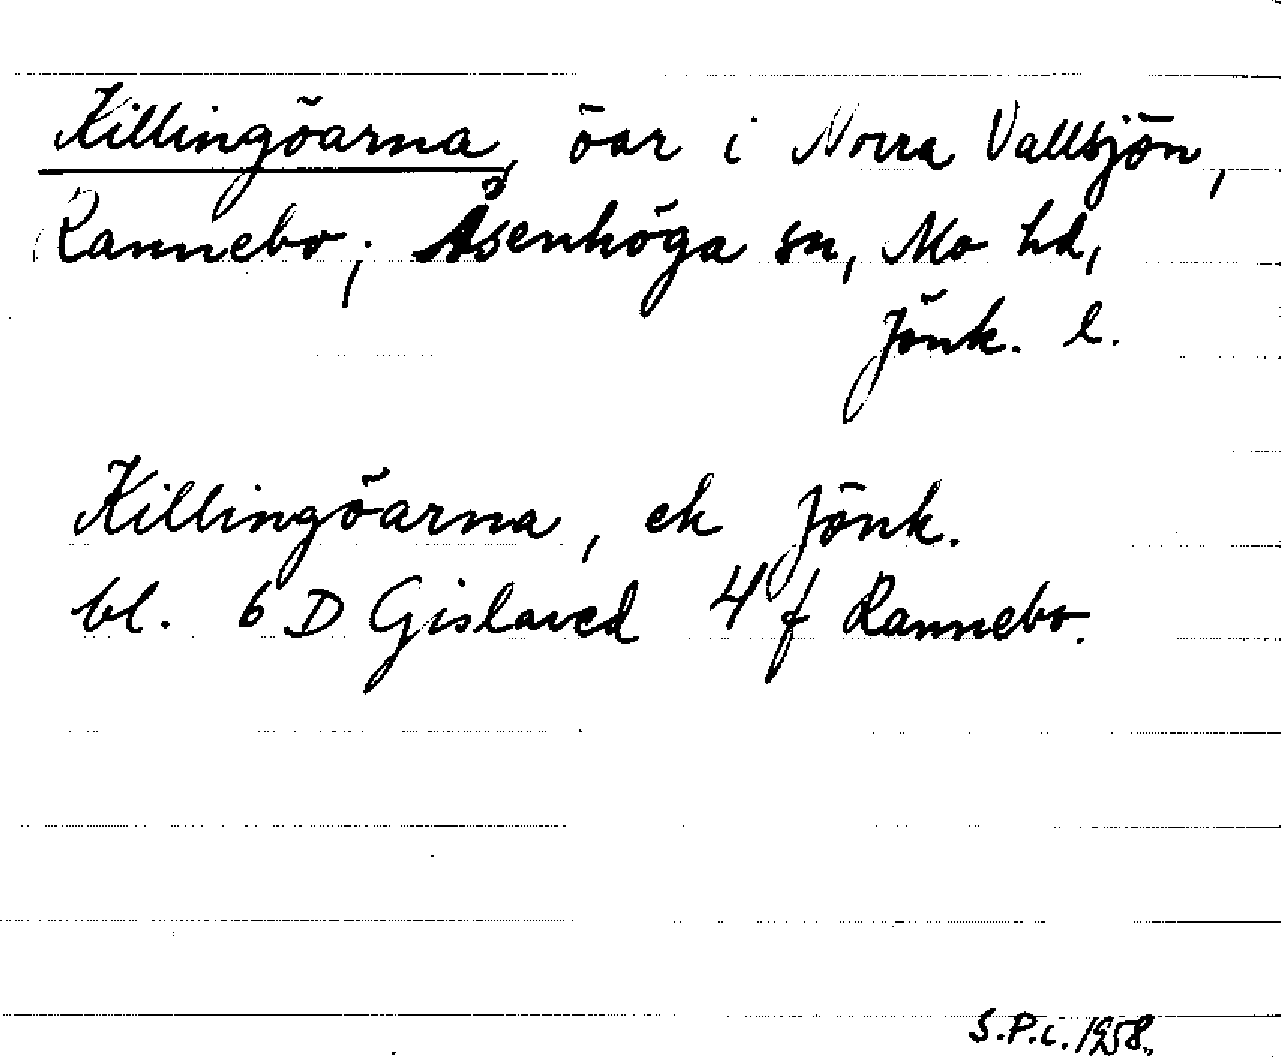 Killingöarna, öar i Norra Vallsjön,
Rannebo; Åsenhöga sn, Mo hd,
Jönk. l.
Killingöarna, ek Jönk.
bl. 6 D Gislaved 4 f Rannebo.
S.P.c. 1958.